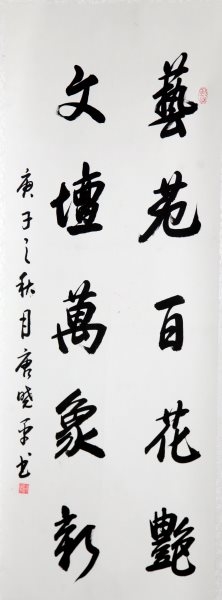 藝苑百花艷
文壇萬象新
庚子之秋月唐曉平书